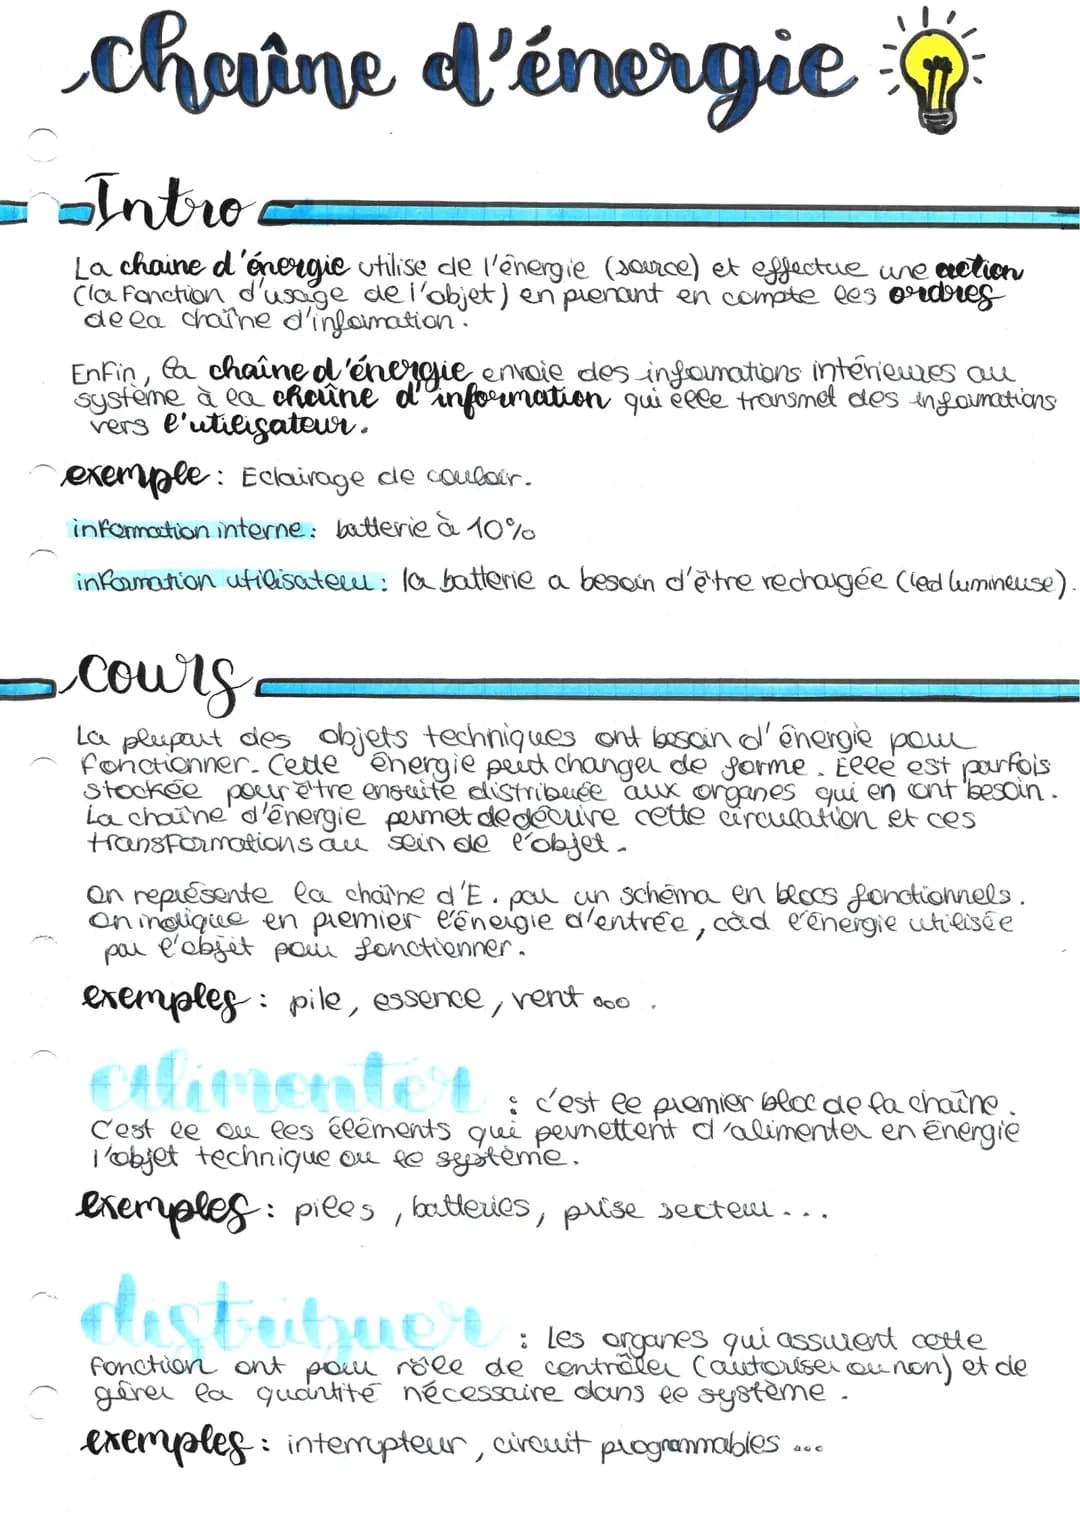 chaîne d'énergie
Intro
La chaine d'énergie utilise de l'énergie (source) et effectue une action
(la fonction d'usage de l'objet) en prenant en compte les ordres
de la chaîne d'information.
Enfin, la chaîne d'énergie envoie des informations intérieures au
système à la chaîne d'information qui elle transmet des informations
vers l'utilisateur.
exemple : Eclairage de couloir.
information interne : batterie à 10%
information utilisateur : la batterie a besoin d'être rechargée (led lumineuse).
cours
La plupart des objets techniques ont besoin d'énergie pour
fonctionner. Cette énergie peut changer de forme. Elle est parfois
stockée pour être ensuite distribuée aux organes qui en ont besoin.
La chaîne d'énergie permet de décrire cette circulation et ces
transformations au sein de l'objet.
On représente la chaîne d'E. par un schéma en blocs fonctionnels.
On indique en premier l'énergie d'entrée, càd l'énergie utilisée
par l'objet pour fonctionner.
exemples : pile, essence, vent ... .
alimenter : c'est le premier bloc de la chaîne.
C'est le ou les éléments qui permettent d'alimenter en énergie
l'objet technique ou le système.
exemples : piles, batteries, prise secteur...
distribuer : Les organes qui assurent cette
fonction ont pour rôle de contrôler (autoriser ou non) et de
gérer la quantité nécessaire dans le système.
exemples : interrupteur, circuit programmables ...